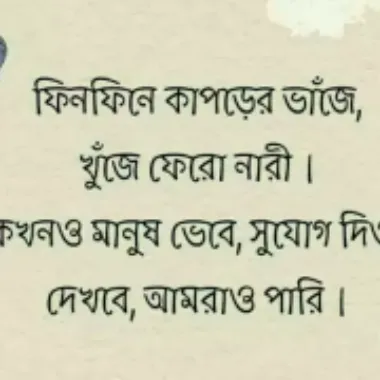 ফিনফিনে কাপড়ের ভাঁজে,
খুঁজে ফেরো নারী।
কখনও মানুষ ভেবে, সুযোগ দিও
দেখবে, আমরাও পারি।